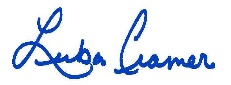 Luba Cramer